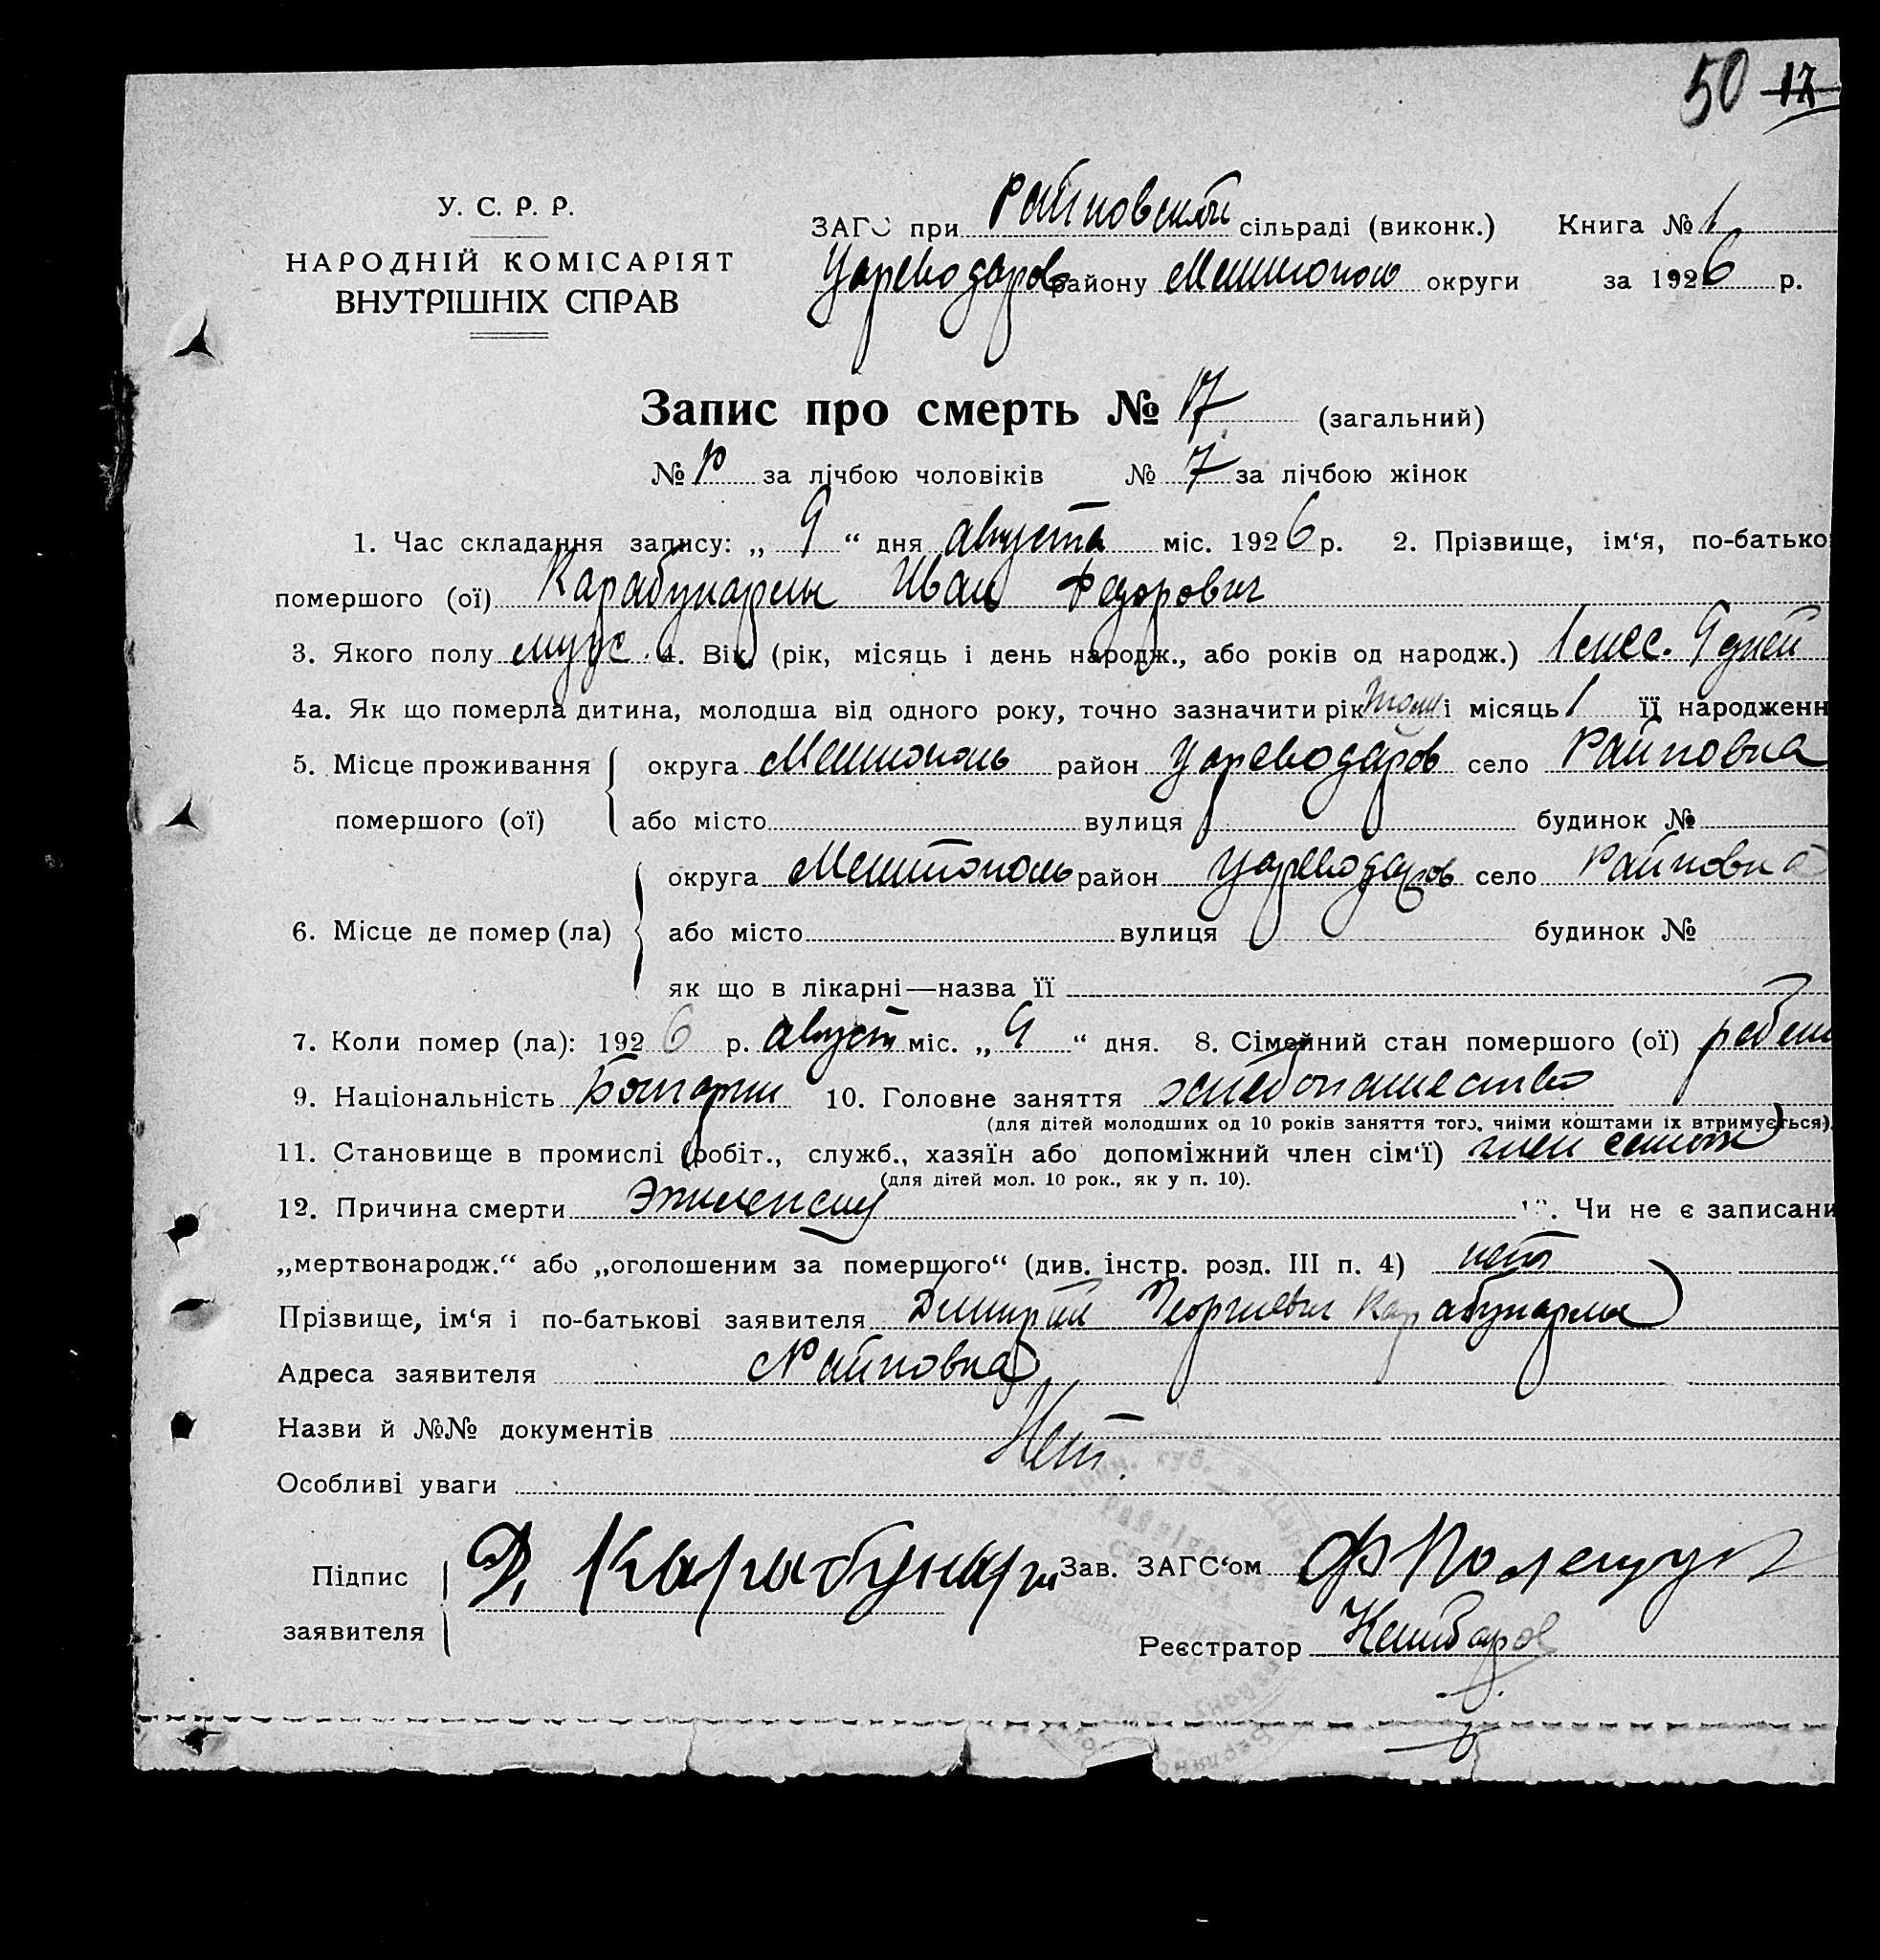 50 17
У. С. Р. Р.
НАРОДНІЙ КОМІСАРІЯТ
ВНУТРІШНІХ СПРАВ
ЗАГС при Райновской сільраді (виконк.) Книга № 1
Цареводаров району Мелитополь округи за 1926 р.
Запис про смерть № 17 (загальний)
№ за лічбою чоловіків № 7 за лічбою жінок
1. Час складання запису: „ 9 “ дня августа міс. 1926 р. 2. Прізвище, ім‘я, по-батько
помершого (ої) Карабунарли Иван Федорович
3. Якого полу муж. 4. Вік (рік, місяць і день народж., або років од народж.) 1 мес. 9 дней
4а. Як що померла дитина, молодша від одного року, точно зазначити рік і місяць 1 її народженн
5. Місце проживання округа Мелитополь район Цареводаров село Райновка
помершого (ої) або місто вулиця будинок №
округа Мелитополь район Цареводаров село Райновка
6. Місце де помер (ла) або місто вулиця будинок №
як що в лікарні—назва її
7. Коли помер (ла): 1926 р. август міс. „ 9 “ дня. 8. Сімейний стан помершого (ої) ребен
9. Національність Болгарин 10. Головне заняття хлебопашество
(для дітей молодших од 10 років заняття того, чиіми коштами іх втримується).
11. Становище в промислі (робіт., служб., хазяїн або допоміжний член сім‘ї) член семьи
(для дітей мол. 10 рок., як у п. 10).
12. Причина смерти Эпилепсия Чи не є записани
„мертвонародж.“ або „оголошеним за померщого“ (див. інстр. розд. III п. 4) нет
Прізвище, ім‘я і по-батькові заявителя Димитрий Георгиевич Карабунарли
Адреса заявителя Райновка
Назви й №№ документів Нет.
Особливі уваги
Підпис Д. Карабунарли Зав. ЗАГС‘ом Ф Полещук
заявителя
Реєстратор